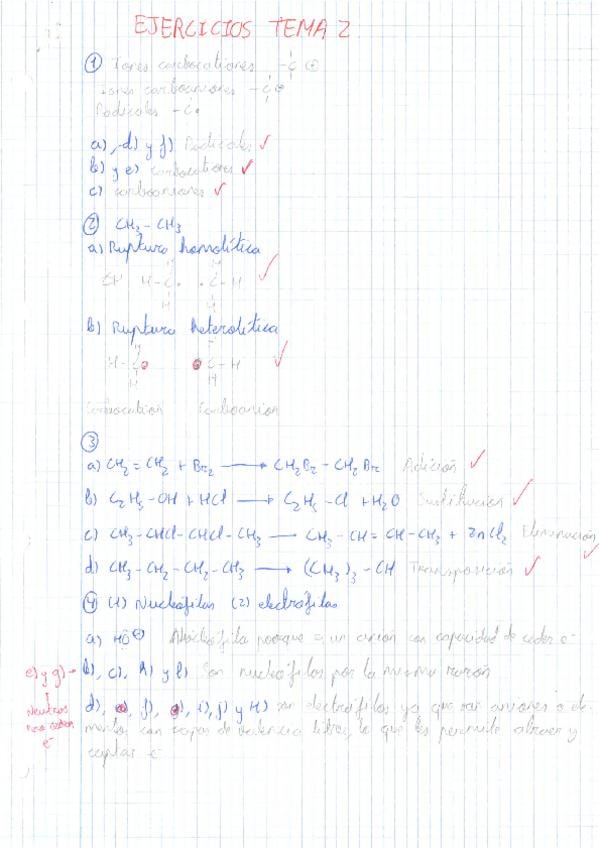 EJERCICIOS TEMA 2
① Iones carbocationes -C- ⊕
Iones carboaniones -C- ⊖
Radicales -C•
a), d) y f) Radicales ✓
b) y e) carbocationes ✓
c) carboaniones ✓
② CH₃-CH₃
a) Ruptura homolítica
H-C• •C-H ✓
b) Ruptura heterolítica
H-C C-H ✓
Carbocatión Carboanión
③
a) CH₂=CH₂ + Br₂ → CH₂Br-CH₂Br Adición ✓
b) C₂H₅-OH + HCl → C₂H₅-Cl + H₂O Sustitución ✓
c) CH₃-CHCl-CHCl-CH₃ → CH₃-CH=CH-CH₃ + ZnCl₂ Eliminación ✓
d) CH₃-CH₂-CH₂-CH₃ → (CH₃)₃-CH Transposición ✓
④ (1) Nucleófilos (2) electrófilos
a) HO⊖ Nucleófilo porque es un anión con capacidad de ceder e⁻
e) y g) → b), c), h) y l) Son nucleófilos por la misma razón
Neutros
pero ceden
e⁻
d), f), i), j) y son electrófilos ya que son aniones o ele-
mentos con capas de valencia libres, lo que les permite atraer y
captar e⁻